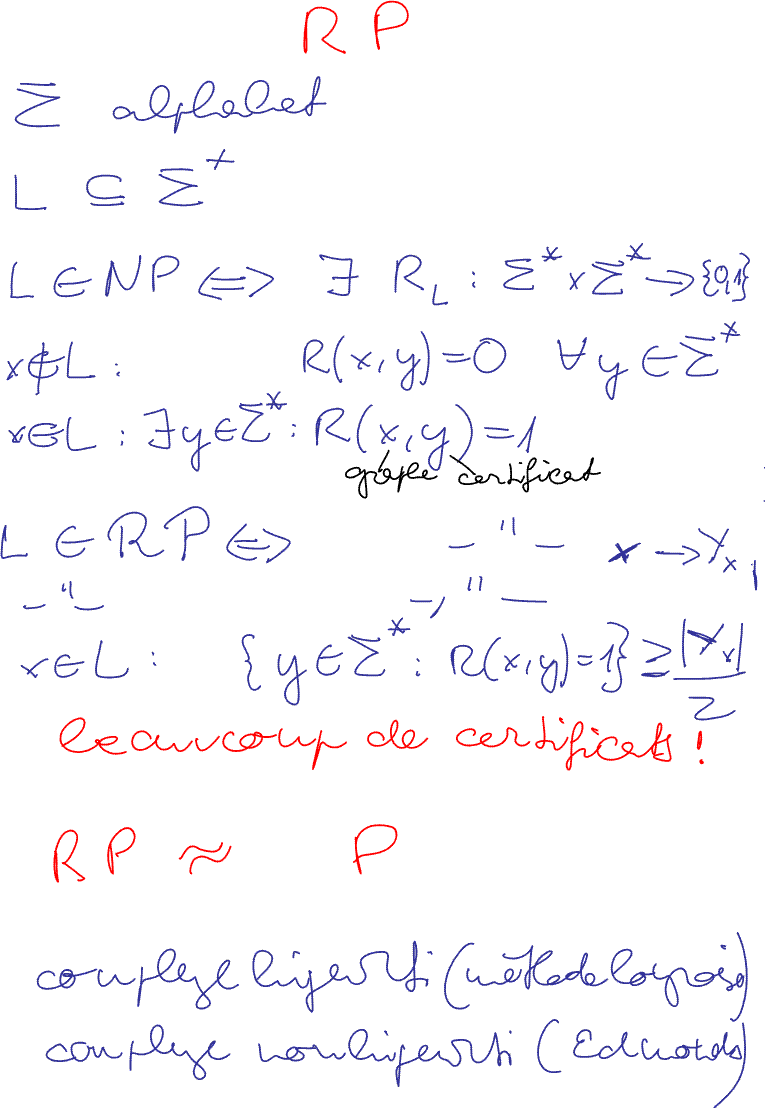 RP
Σ alphabet
L ⊆ Σ⁺
L ∈ NP ⟺ ∃ R_L : Σ* × Σ* → {0,1}
x ∉ L : R(x,y) = 0 ∀ y ∈ Σ*
x ∈ L : ∃ y ∈ Σ* : R(x,y) = 1
graphe certificat
L ∈ RP ⟺ — " — x → Y_x,
— " — — " —
x ∈ L : { y ∈ Σ* : R(x,y) = 1 } ≥ |Y_x| / 2
beaucoup de certificats !
RP ≈ P
couplage biparti (méthode
couplage non biparti (Edmonds)